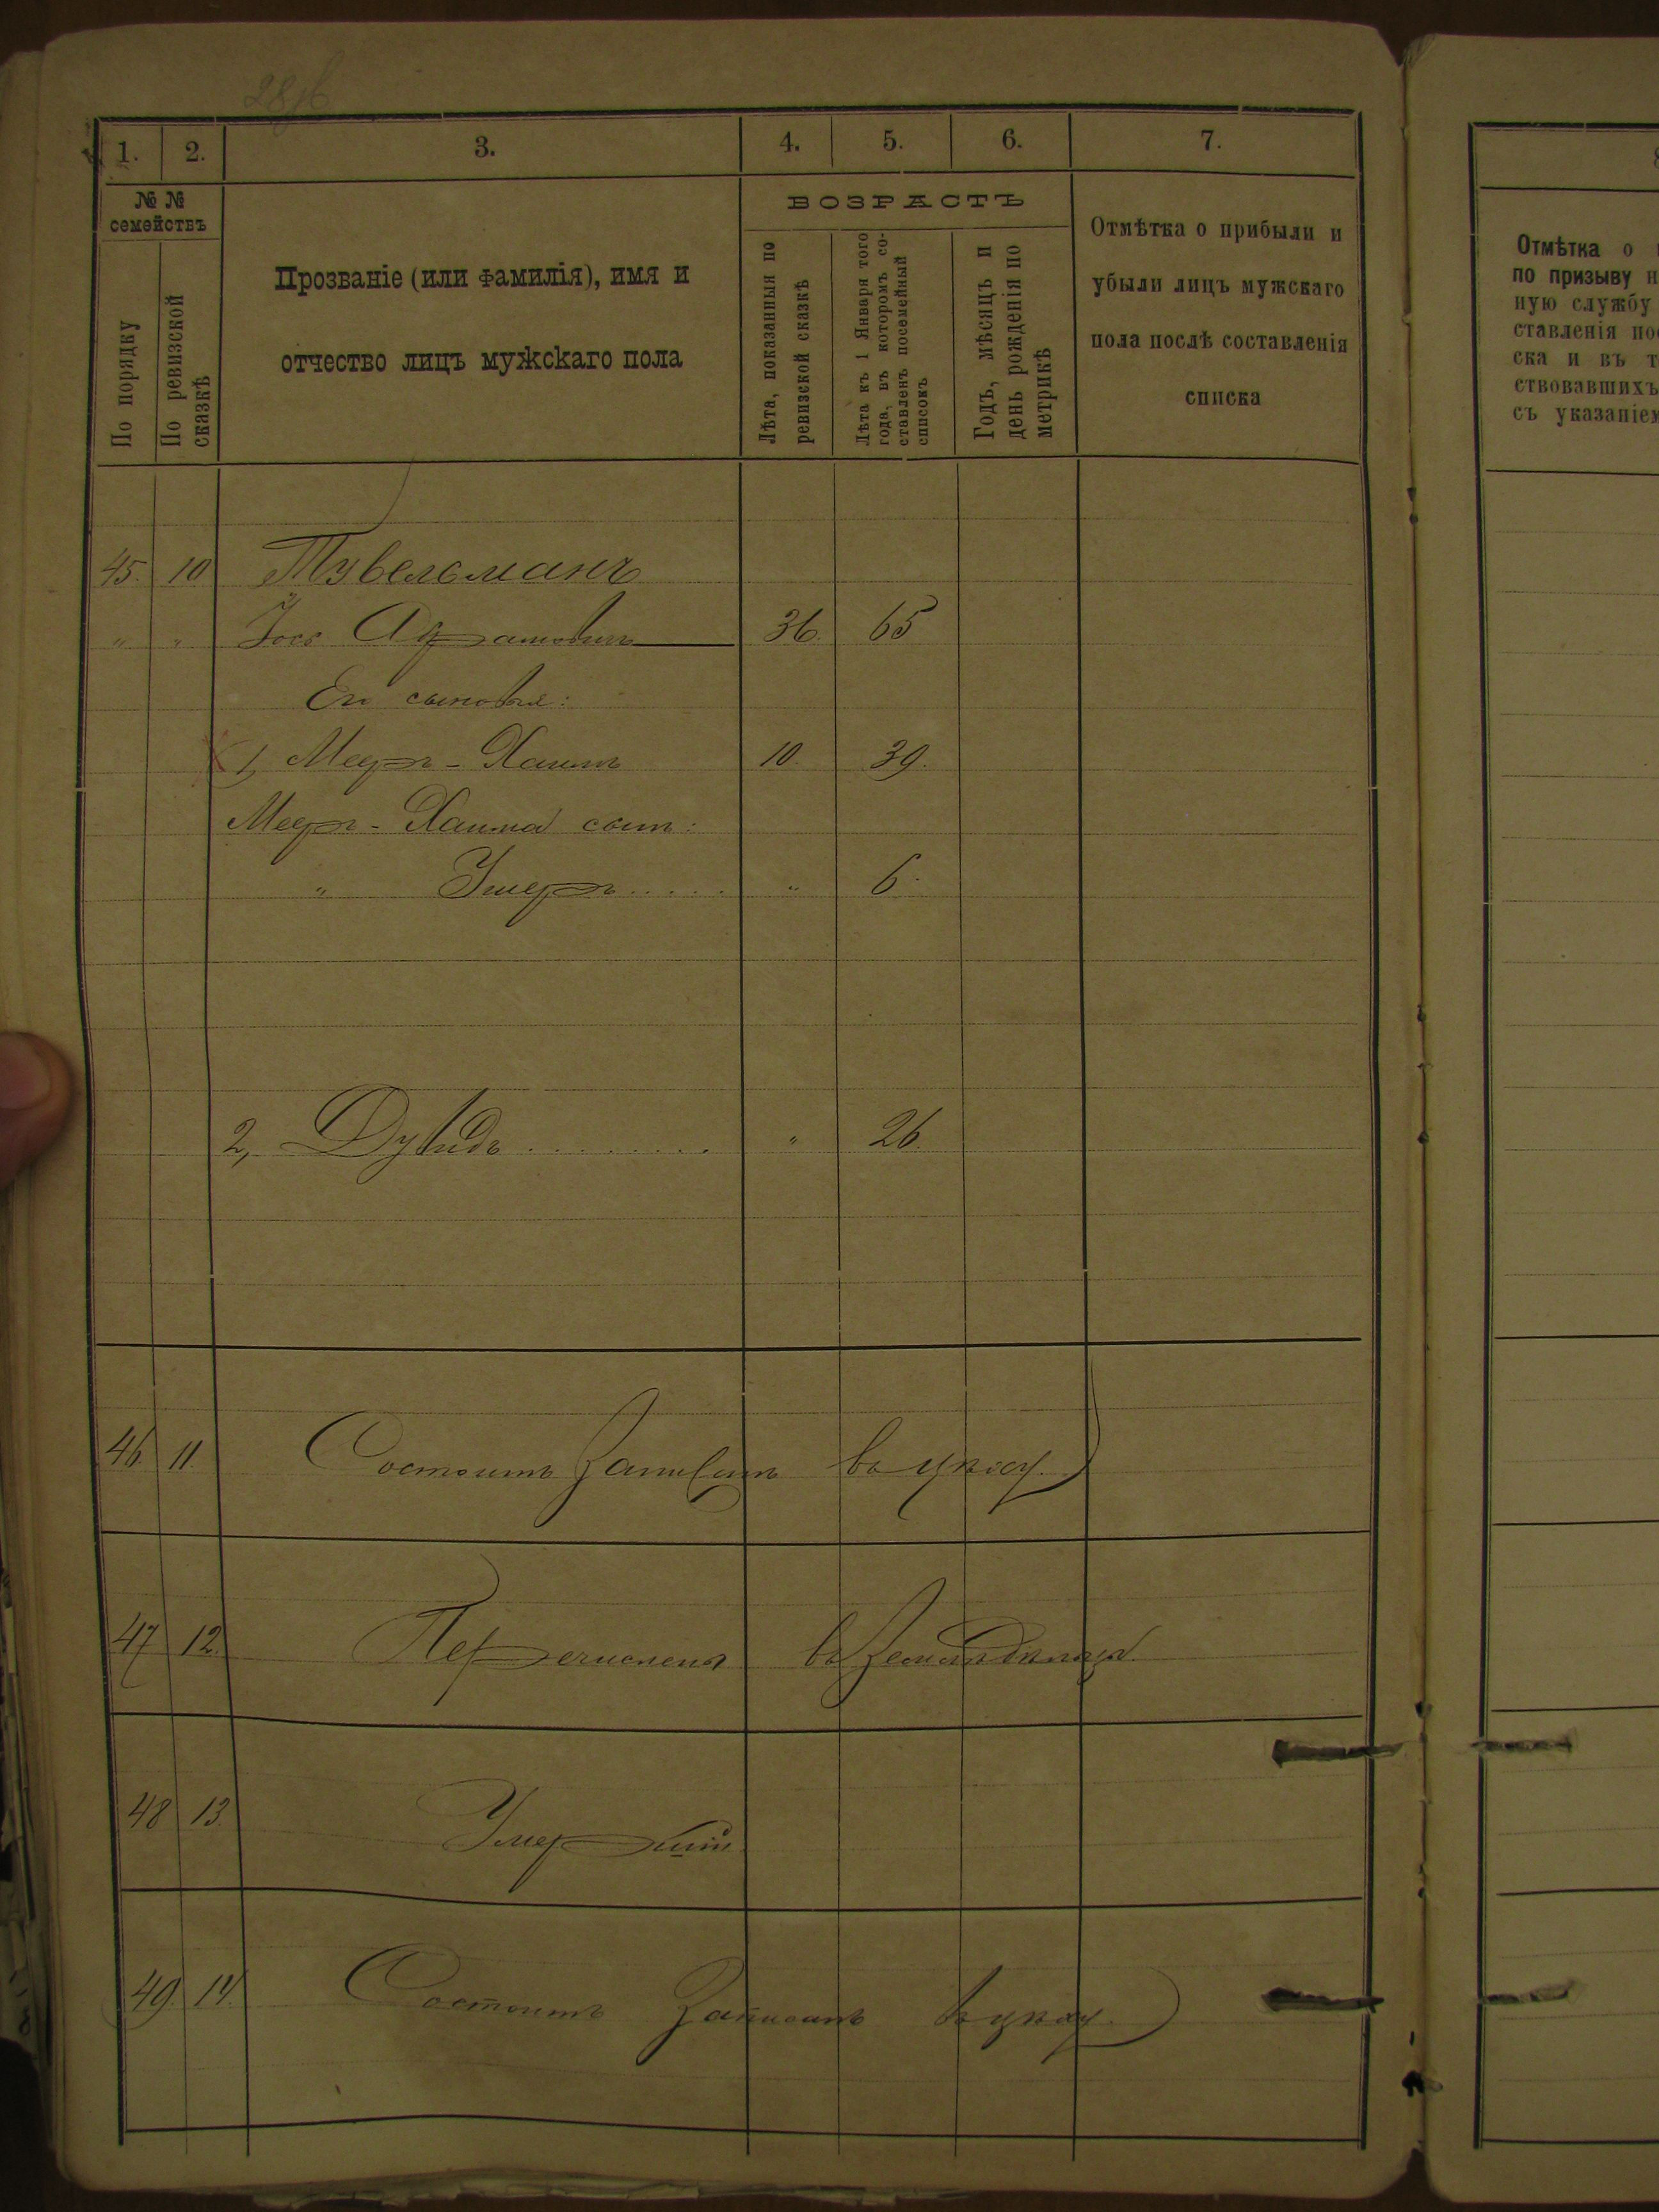 28 об
1. 2. 3. 4. 5. 6. 7.
№ №
семействъ
По порядку
По ревизской
сказкѣ
Прозваніе (или фамилія), имя и
отчество лицъ мужскаго пола
ВОЗРАСТЪ
Лѣта, показанныя по
ревизской сказкѣ
Лѣта къ 1 Января того
года, въ которомъ со-
ставленъ посемейный
списокъ
Годъ, мѣсяцъ и
день рожденія по
метрикѣ
Отмѣтка о прибыли и
убыли лицъ мужскаго
пола послѣ составленія
списка
45. 10
" " Іосъ 36. 65
Его сыновья:
1, Мееръ-Хаимъ 10. 39.
Мееръ-Хаима сынъ:
" " 6.
2, Дувидъ " 26.
46 11. Состоитъ
47 12. Перечисленъ въ земледѣльцы.
48 13. Умершій
49. 14. Состоитъ записанъ
Отмѣтка о
по призыву
ную службу
ставленія
ска и въ
ствовавшихъ
съ указаніем